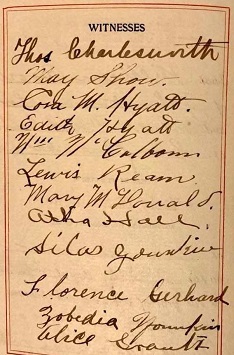 WITNESSES
Thos Charlesworth
May Snow.
Cora M. Hyatt.
Edith Hyatt
Wm McCalbom
Lewis Ream
Mary McDonald.
Alba Hall.
Silas Younkin
Florence Gerhard
Zobedia Younkin
Alice Grantt